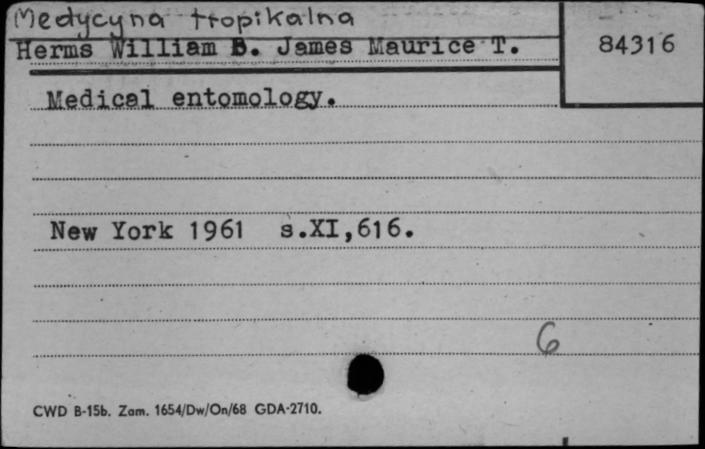 Medycyna tropikalna
Herms William B. James Maurice T.
84316
Medical entomology.
New York 1961 s.XI,616.
6
CWD B-15b. Zam. 1654/Dw/On/68 GDA-2710.